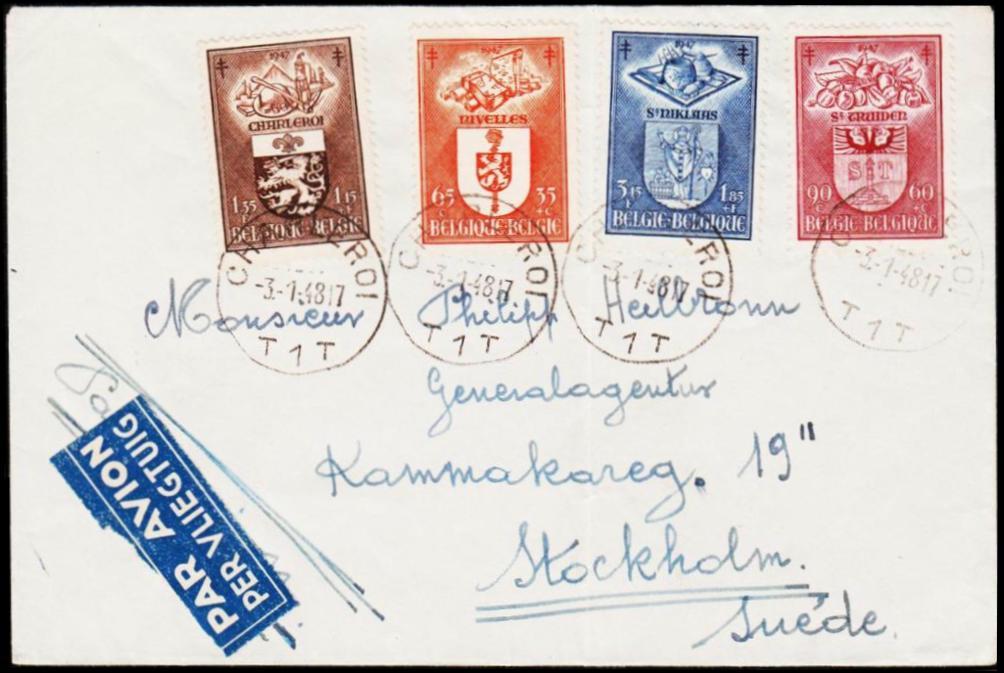 1947
CHARLEROI
1.35 1.15
BELGIQUE-BELGIE
1947
NIVELLES
65 c 35 +c
BELGIQUE-BELGIE
1947
St NIKLAAS
3.15 F 1.85 +F
BELGIE-BELGIQUE
1947
St TRUIDEN
S T
90 c 60 +c
BELGIE-BELGIQUE
CHARLEROI
-3.-1.4817
T 1 T
CHARLEROI
-3.-1.4817
T 1 T
CHARLEROI
-3.-1.4817
T 1 T
CHARLEROI
-3.-1.4817
T 1 T
Monsieur Philipp Heilbronn
Generalagentur
Kammakareg. 19"
Stockholm.
Suéde.
PAR AVION
PER VLIEGTUIG